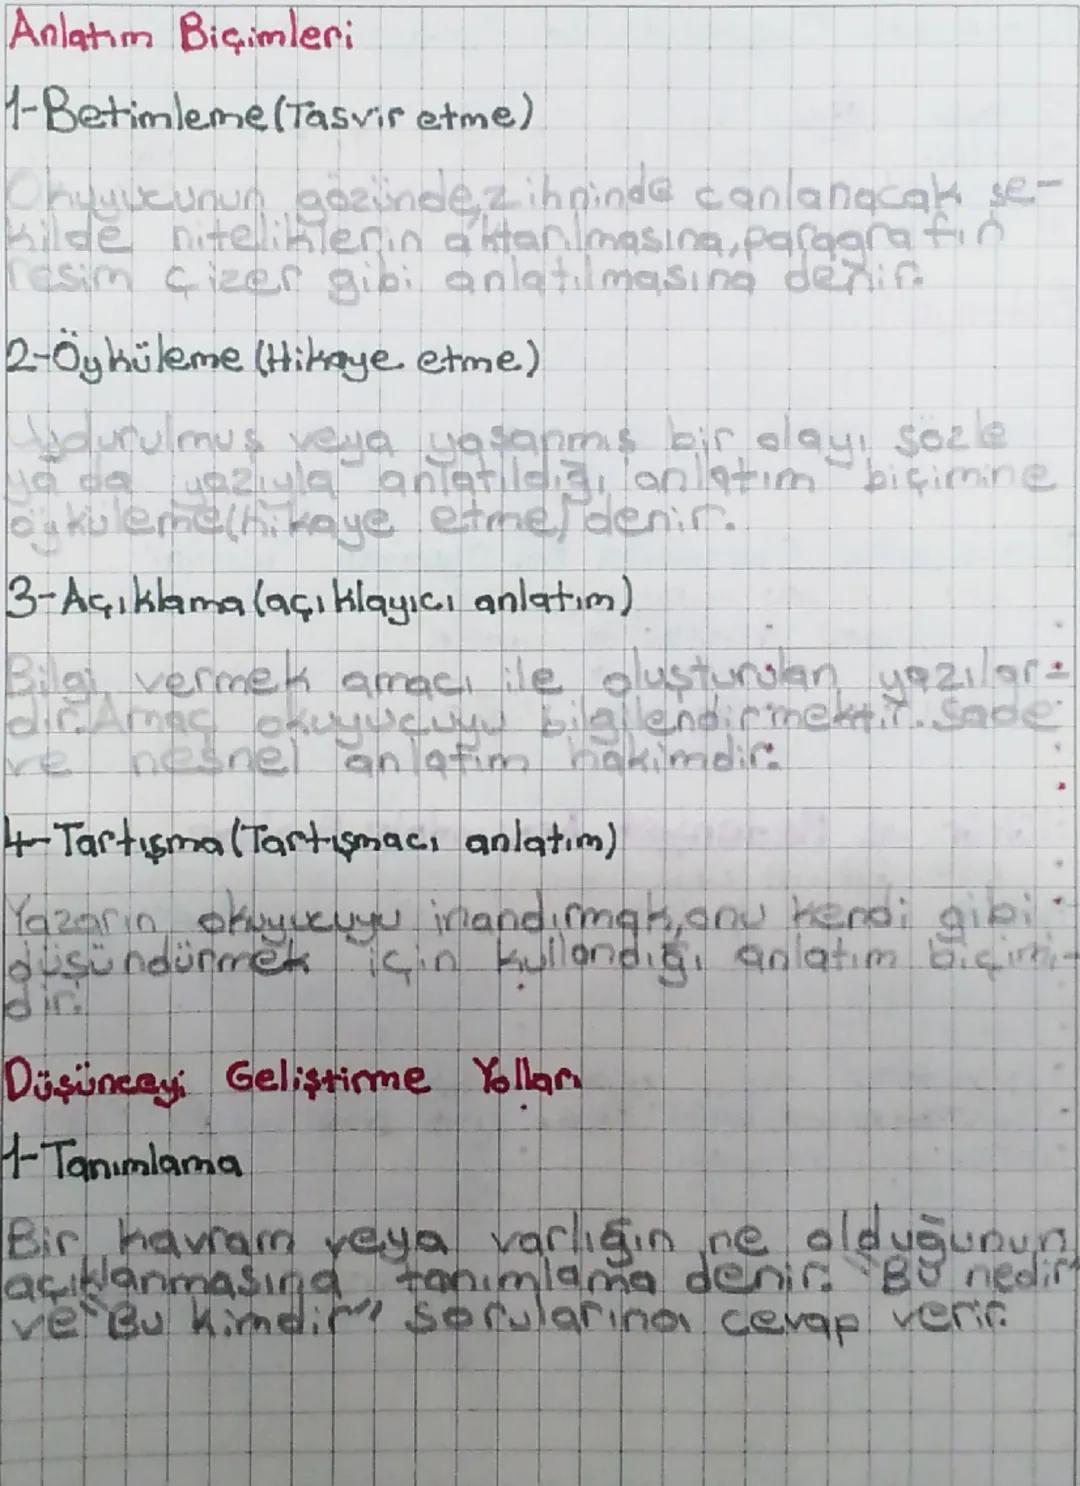 Anlatım Biçimleri
1-Betimleme(Tasvir etme)
Okuyucunun gözünde,zihninde canlanacak şe-
kilde niteliklerin aktarılmasına,paragrafın
resim çizer gibi anlatılmasına denir.
2-Öyküleme (Hikaye etme)
Uydurulmuş veya yaşanmış bir olayı sözle
ya da yazıyla anlatıldığı anlatım biçimine
öyküleme(hikaye etme) denir.
3-Açıklama(açıklayıcı anlatım)
Bilgi vermek amacı ile oluşturulan yazılar-
dır.Amaç okuyucuyu bilgilendirmektir. Sade
ve nesnel anlatım hakimdir.
4-Tartışma(Tartışmacı anlatım)
Yazarın okuyucuyu inandırmak,onu kendi gibi
düşündürmek için kullandığı anlatım biçimi-
dir.
Düşünceyi Geliştirme Yolları
1-Tanımlama
Bir kavram veya varlığın ne olduğunun
açıklanmasına tanımlama denir. "Bu nedir"
ve "Bu kimdir" sorularına cevap verir.